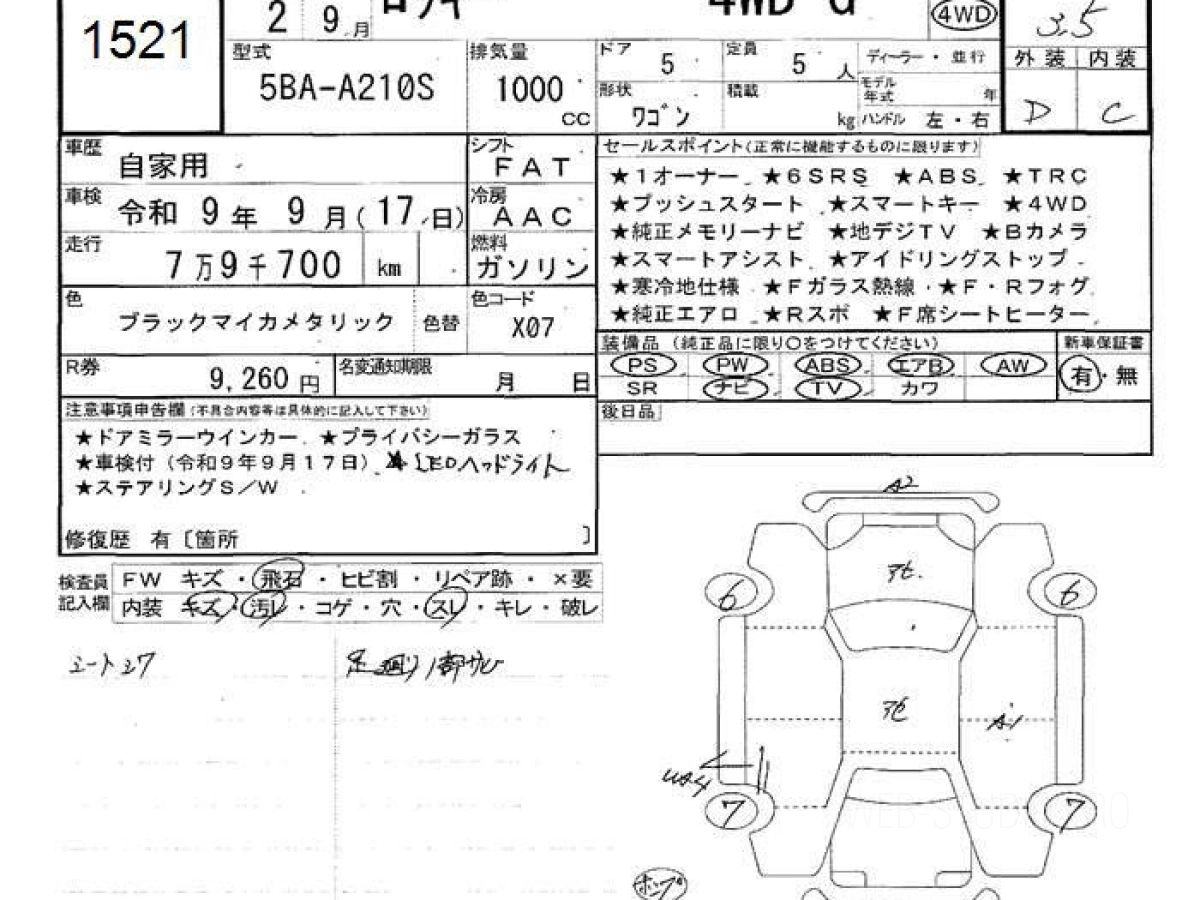 1521
2 9月
ロッキー 4WD G
4WD
3.5
型式
5BA-A210S
排気量
1000
cc
ドア 5
定員 5人
ディーラー・並行
形状
ワゴン
積載
kg
モデル年式 年
ハンドル 左・右
外装 内装
D C
車歴 自家用
シフト
FAT
車検 令和 9年 9月(17日)
冷房
AAC
走行 7万9千700 km
燃料
ガソリン
色
ブラックマイカメタリック
色替
色コード
X07
R券 9,260円
名変通知期限
月 日
セールスポイント(正常に機能するものに限ります)
★1オーナー ★6SRS ★ABS ★TRC
★プッシュスタート ★スマートキー ★4WD
★純正メモリーナビ ★地デジTV ★Bカメラ
★スマートアシスト ★アイドリングストップ
★寒冷地仕様 ★Fガラス熱線 ★F・Rフォグ
★純正エアロ ★Rスポ ★F席シートヒーター
装備品(純正品に限り○をつけてください)
PS PW ABS エアB AW
SR ナビ TV カワ
新車保証書
有・無
後日品
注意事項申告欄(不具合内容等は具体的に記入して下さい)
★ドアミラーウインカー ★プライバシーガラス
★車検付(令和9年9月17日) ★LEDヘッドライト
★ステアリングS/W
修復歴 有〔箇所 〕
検査員記入欄
FW キズ・飛石・ヒビ割・リペア跡・×要
内装 キズ・汚レ・コゲ・穴・スレ・キレ・破レ
シートシワ
足廻り1部サビ
A2
6 6
アセ
アセ
A1
UA4
7 7
ホンプ